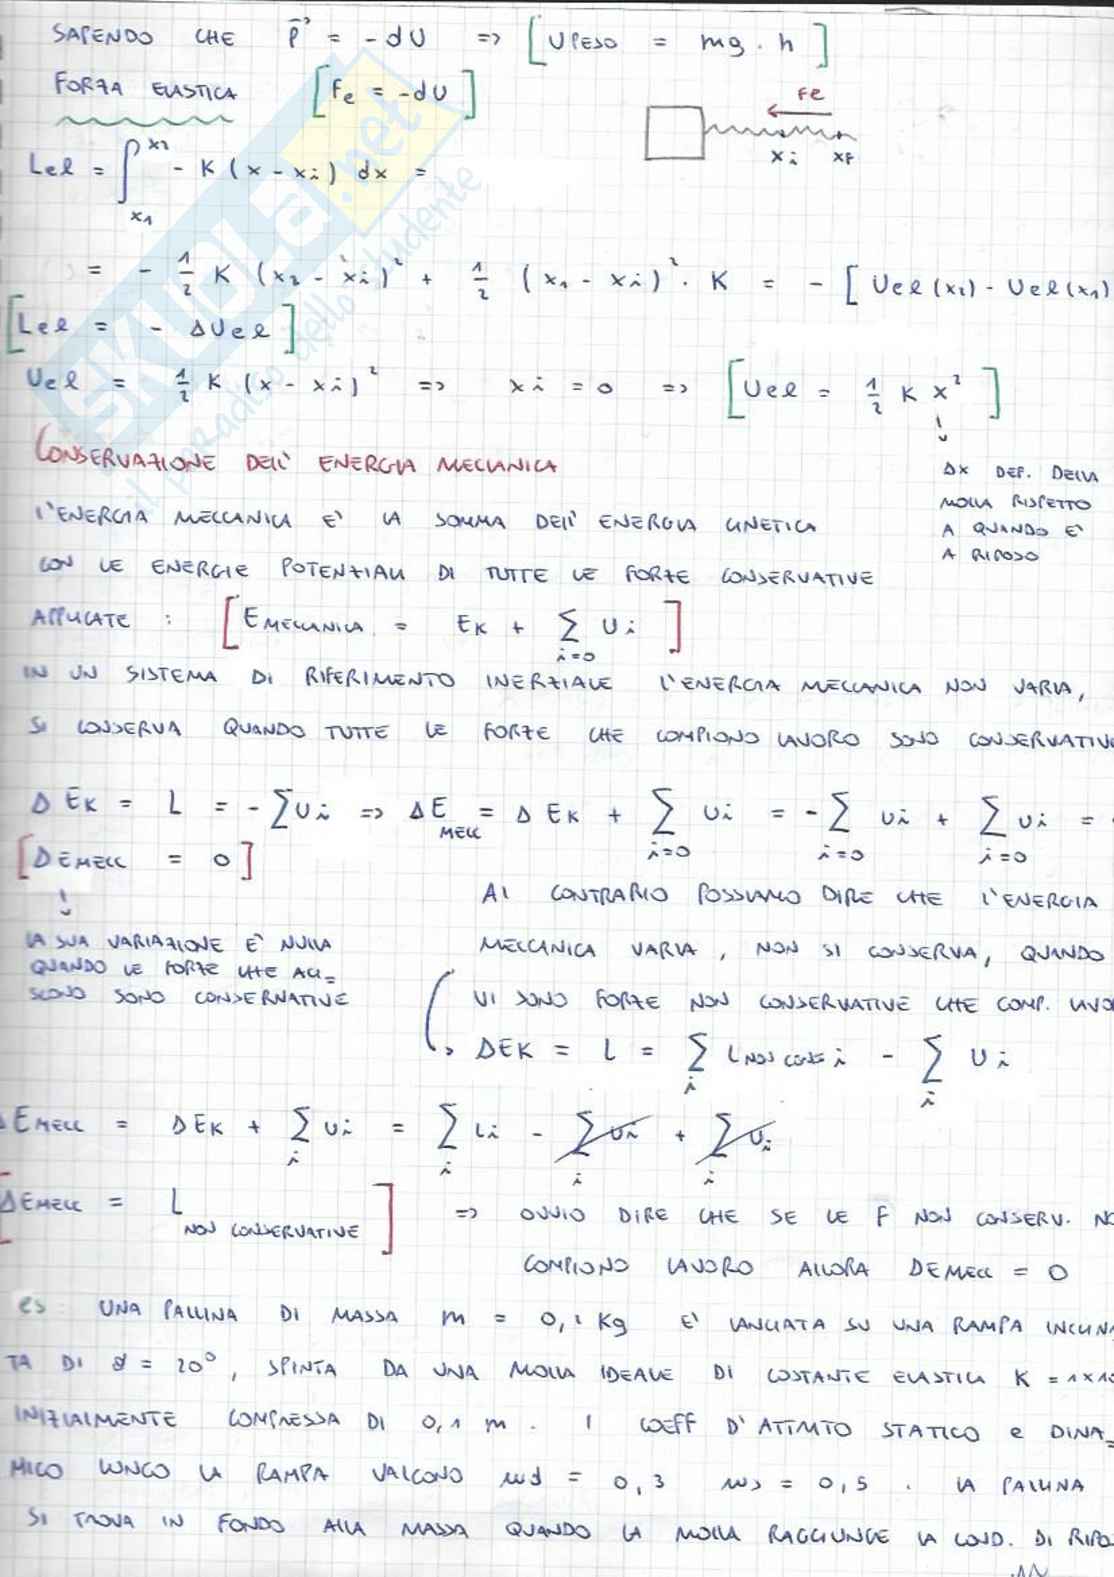 SAPENDO CHE P⃗ = -dU => [UPESO = mg·h]
FORZA ELASTICA [Fe = -dU]
Fe
xi xf
Lel = ∫ x1 x2 - K (x - xi) dx =
= - 1/2 K (x2 - xi)² + 1/2 (x1 - xi)² · K = - [Uel(x2) - Uel(x1)
[Lel = - ΔUel]
Uel = 1/2 K (x - xi)² => xi = 0 => [Uel = 1/2 K x²]
Δx DEF. DELLA
MOLLA RISPETTO
A QUANDO E'
A RIPOSO
CONSERVAZIONE DELL' ENERGIA MECCANICA
L'ENERGIA MECCANICA E' LA SOMMA DELL' ENERGIA CINETICA
CON LE ENERGIE POTENZIALI DI TUTTE LE FORZE CONSERVATIVE
APPLICATE : [EMECCANICA = EK + Σ i=0 Ui]
IN UN SISTEMA DI RIFERIMENTO INERZIALE L'ENERGIA MECCANICA NON VARIA,
SI CONSERVA QUANDO TUTTE LE FORZE CHE COMPIONO LAVORO SONO CONSERVATIVE
Δ EK = L = -ΣUi => ΔEMECC = Δ EK + Σ i=0 Ui = -Σ i=0 Ui + Σ i=0 Ui =
[ΔEMECC = 0]
LA SUA VARIAZIONE E' NULLA
QUANDO LE FORZE CHE AGI=
SCONO SONO CONSERVATIVE
AL CONTRARIO POSSIAMO DIRE CHE L'ENERGIA
MECCANICA VARIA, NON SI CONSERVA, QUANDO
VI SONO FORZE NON CONSERVATIVE CHE COMP. LAVO
ΔEK = L = Σ i LNON CONS i - Σ i Ui
ΔEMECC = ΔEK + Σ i Ui = Σ i Li - Σ i Ui + Σ i Ui
[ΔEMECC = L NON CONSERVATIVE] => OVVIO DIRE CHE SE LE F NON CONSERV. NO
COMPIONO LAVORO ALLORA ΔEMECC = 0
es: UNA PALLINA DI MASSA m = 0,1 Kg E' LANCIATA SU UNA RAMPA INCLINA
TA DI = 20°, SPINTA DA UNA MOLLA IDEALE DI COSTANTE ELASTICA K = 1x10
INIZIALMENTE COMPRESSA DI 0,1 m. I COEFF D'ATTRITO STATICO e DINA=
MICO LUNGO LA RAMPA VALGONO μd = 0,3 μs = 0,5. LA PALLINA
SI TROVA IN FONDO ALLA MASSA QUANDO LA MOLLA RAGGIUNGE LA COND. DI RIPO
SKUOLA.net
il paradiso dello studente